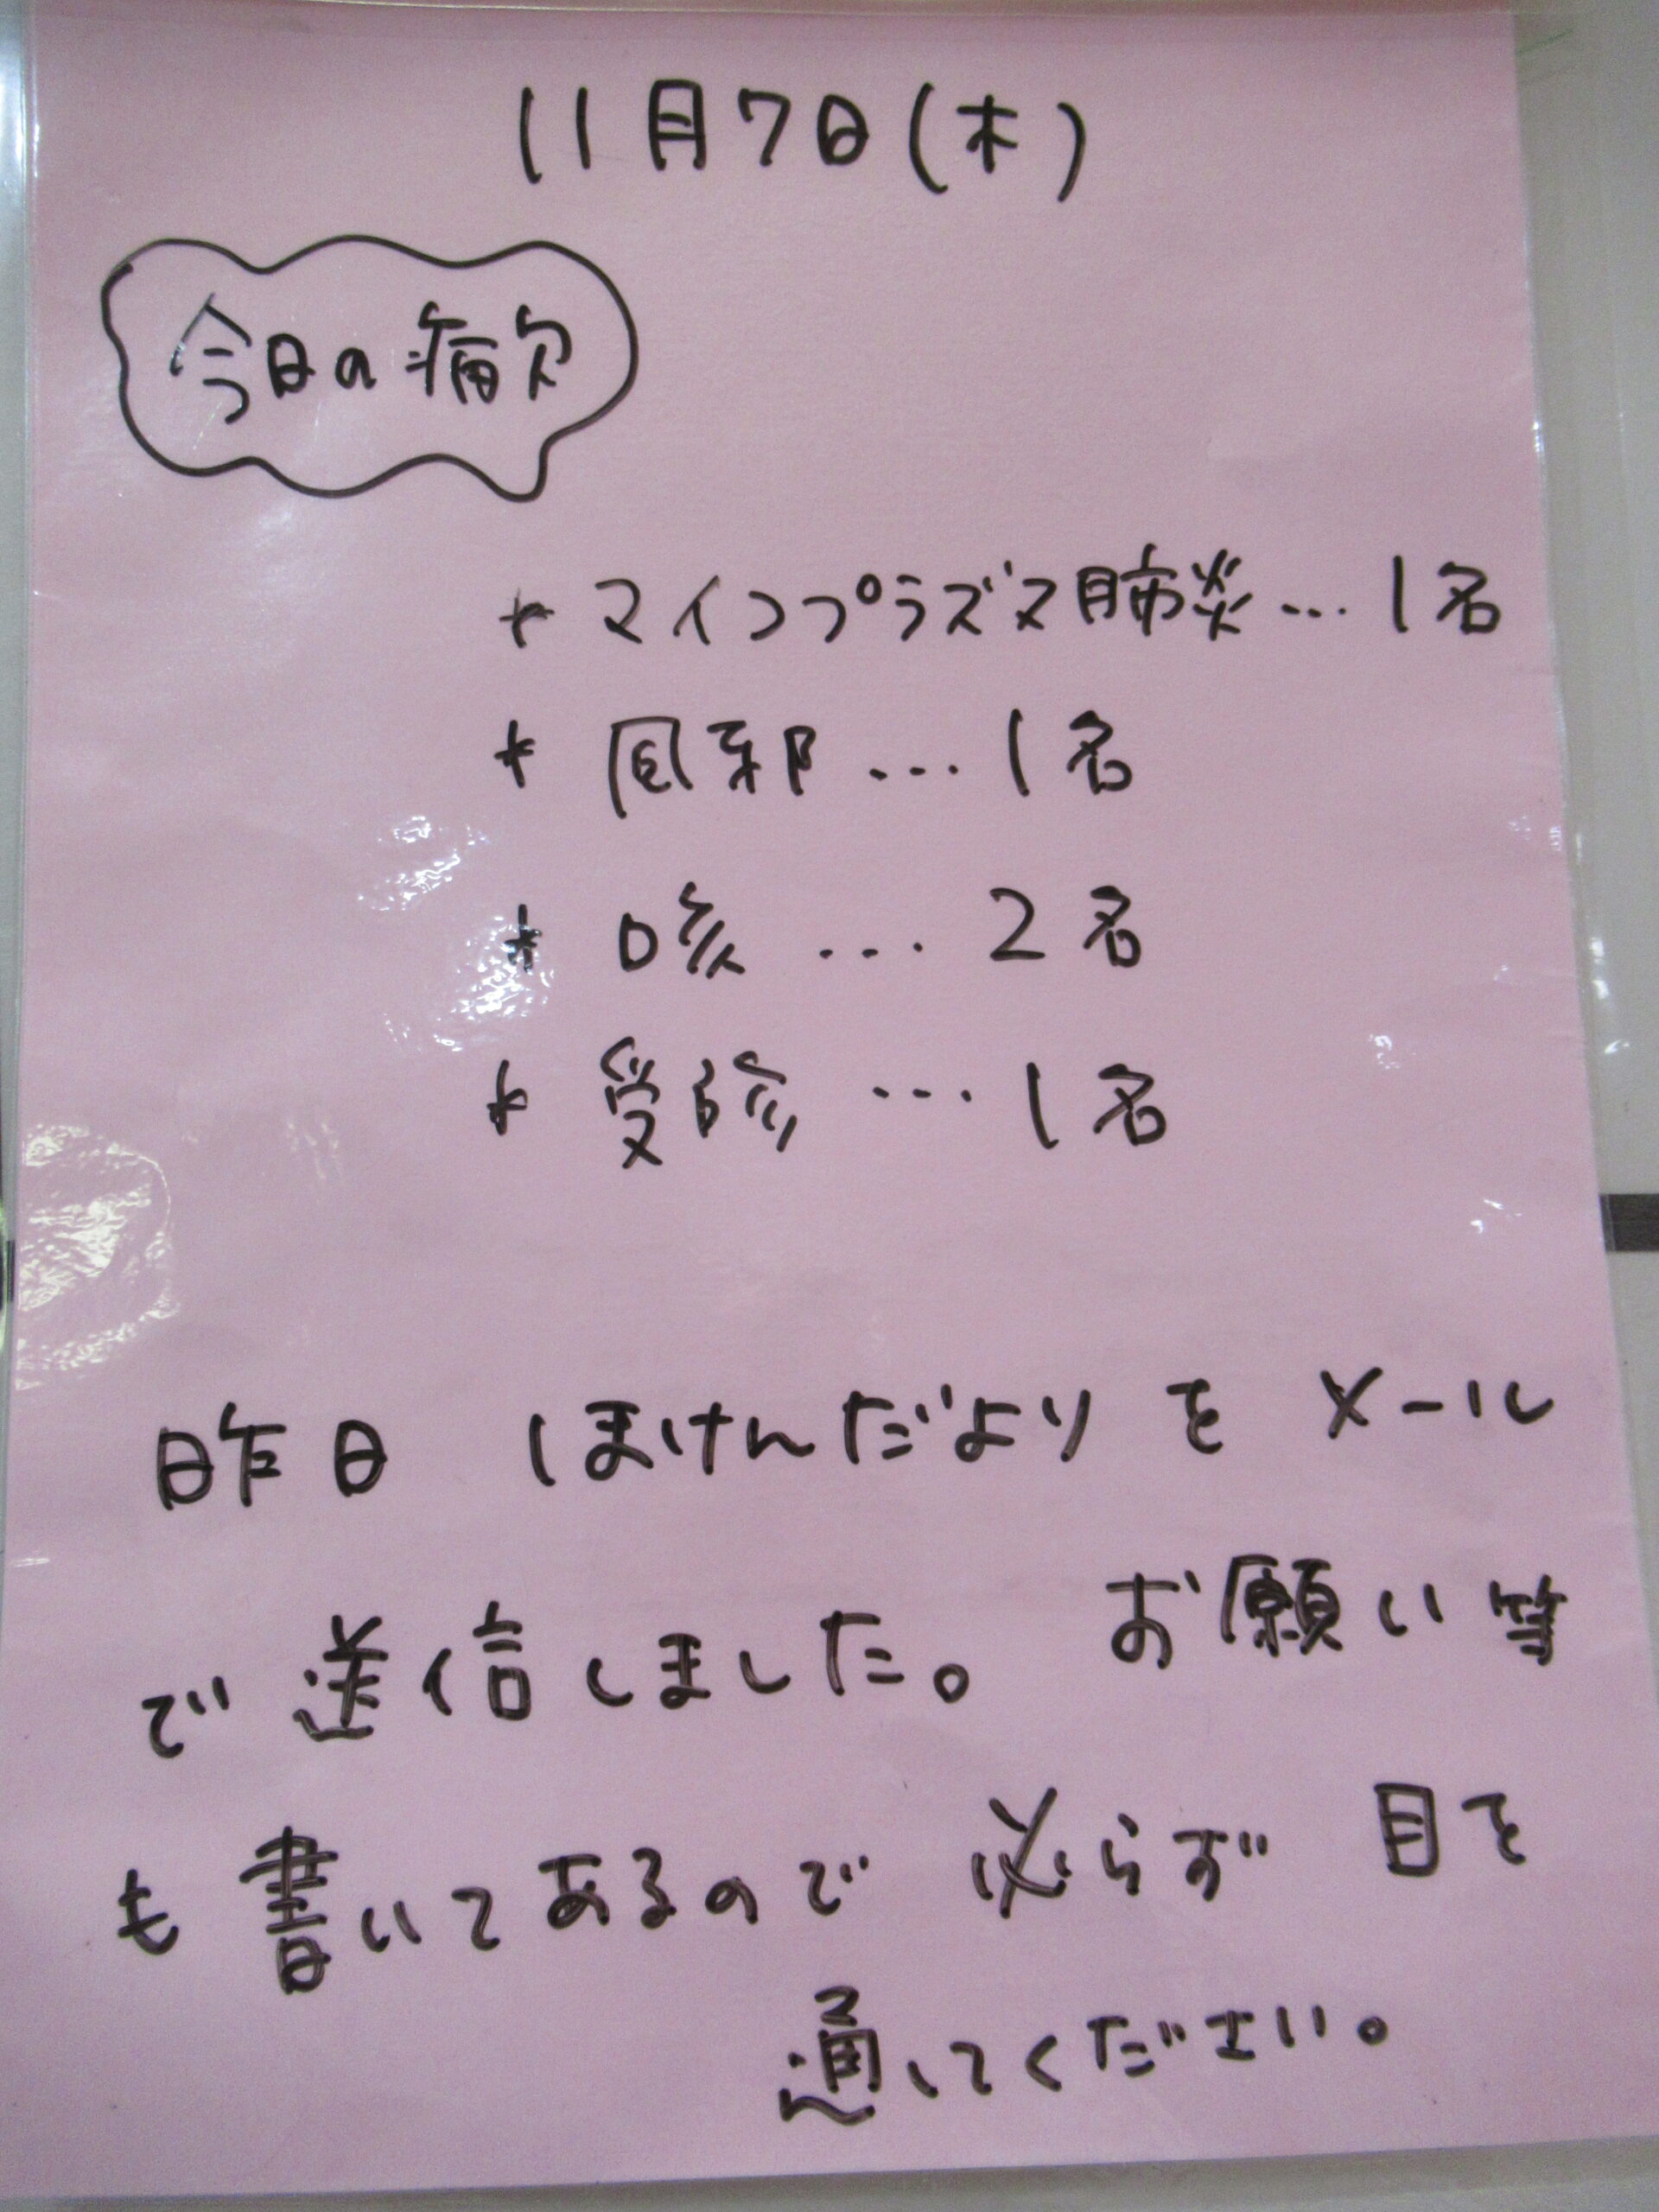 11月7日(木)
今日の病欠
* マイコプラズマ肺炎…1名
* 風邪…1名
* 咳…2名
* 受診…1名
昨日 ほけんだより を メール
で 送信しました。 お願い等
も 書いてあるので 必らず 目を
通してください。